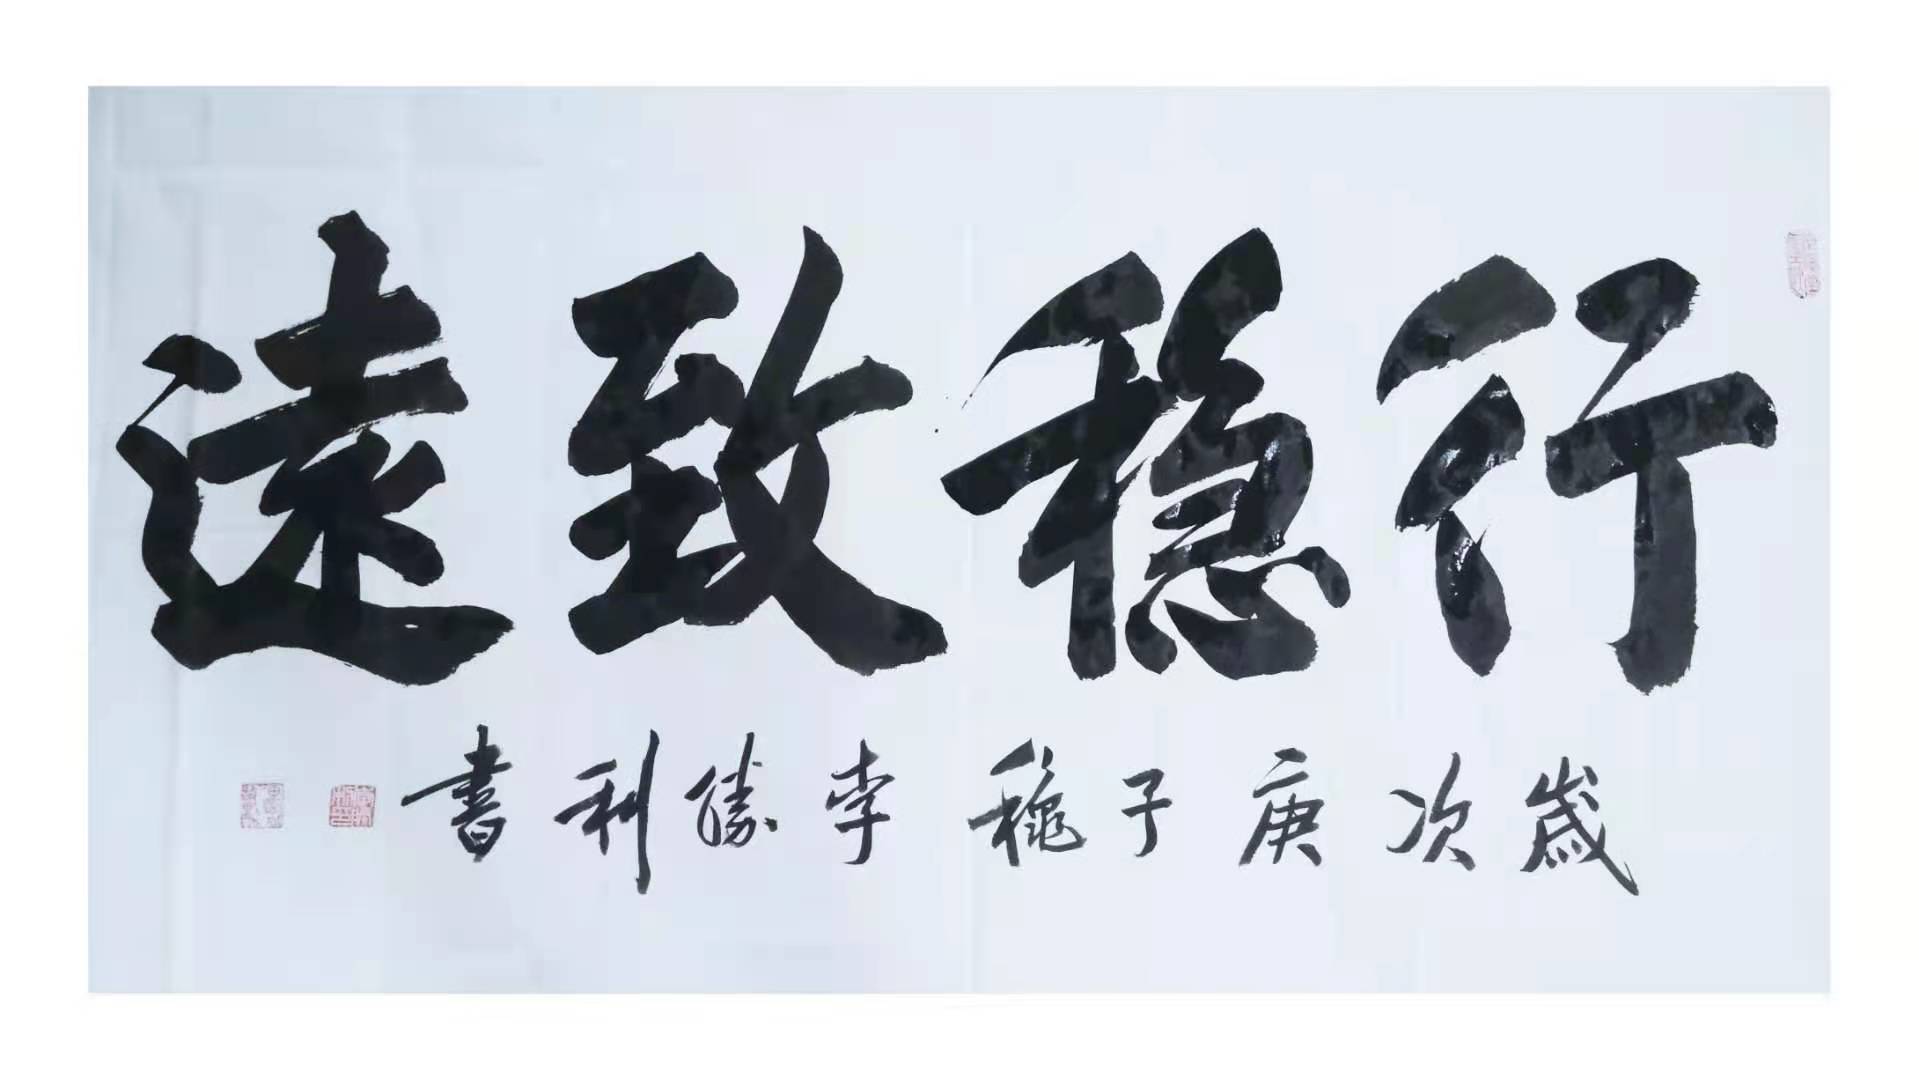 行稳致遠
歲次庚子穐李勝利書